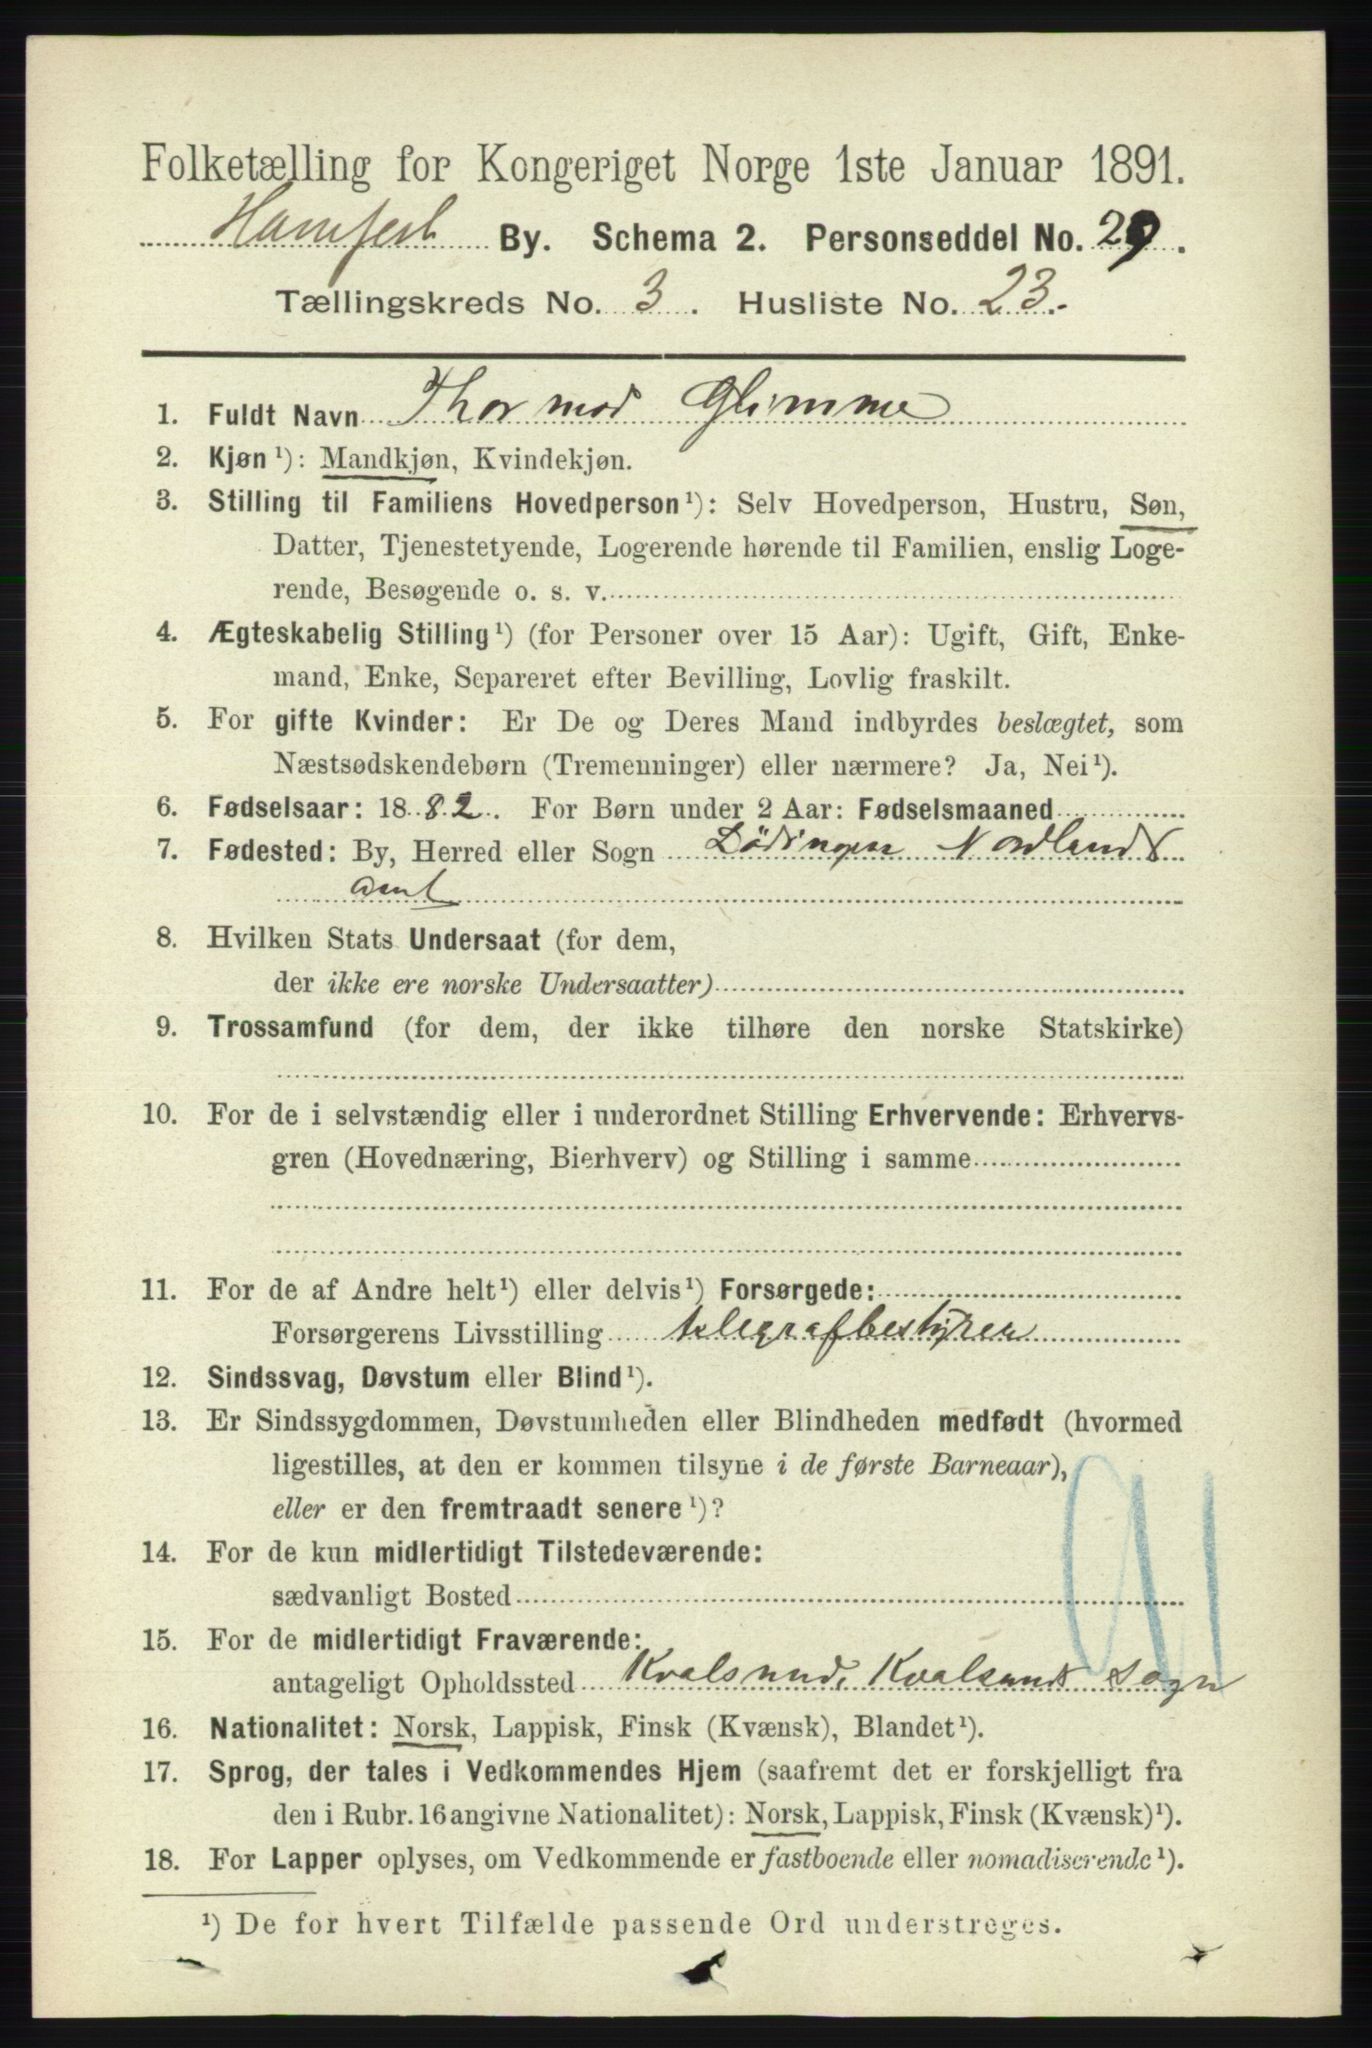 Folketælling for Kongeriget Norge 1ste Januar 1891.
Hamfest By. Schema 2. Personseddel No. 29.
Tællingskreds No. 3. Husliste No. 23.
1. Fuldt Navn Thormod Glimme
2. Kjøn ¹): Mandkjøn, Kvindekjøn.
3. Stilling til Familiens Hovedperson ¹): Selv Hovedperson, Hustru, Søn,
Datter, Tjenestetyende, Logerende hørende til Familien, enslig Loge-
rende, Besøgende o. s. v.
4. Ægteskabelig Stilling ¹) (for Personer over 15 Aar): Ugift, Gift, Enke-
mand, Enke, Separeret efter Bevilling, Lovlig fraskilt.
5. For gifte Kvinder: Er De og Deres Mand indbyrdes beslægtet, som
Næstsødskendebørn (Tremenninger) eller nærmere? Ja, Nei ¹).
6. Fødselsaar: 1882. For Børn under 2 Aar: Fødselsmaaned
7. Fødested: By, Herred eller Sogn Lödingen Nordlands
amt
8. Hvilken Stats Undersaat (for dem,
der ikke ere norske Undersaatter)
9. Trossamfund (for dem, der ikke tilhøre den norske Statskirke)
10. For de i selvstændig eller i underordnet Stilling Erhvervende: Erhvervs-
gren (Hovednæring, Bierhverv) og Stilling i samme
11. For de af Andre helt ¹) eller delvis ¹) Forsørgede:
Forsørgerens Livsstilling telegrafbestyrer
12. Sindssvag, Døvstum eller Blind ¹).
13. Er Sindssygdommen, Døvstumheden eller Blindheden medfødt (hvormed
ligestilles, at den er kommen tilsyne i de første Barneaar),
eller er den fremtraadt senere ¹)?
14. For de kun midlertidigt Tilstedeværende:
sædvanligt Bosted
15. For de midlertidigt Fraværende:
antageligt Opholdssted Kvalsund, Kvalsunds Sogn
16. Nationalitet: Norsk, Lappisk, Finsk (Kvænsk), Blandet ¹).
17. Sprog, der tales i Vedkommendes Hjem (saafremt det er forskjelligt fra
den i Rubr. 16 angivne Nationalitet): Norsk, Lappisk, Finsk (Kvænsk) ¹).
18. For Lapper oplyses, om Vedkommende er fastboende eller nomadiserende ¹).
¹) De for hvert Tilfælde passende Ord understreges.